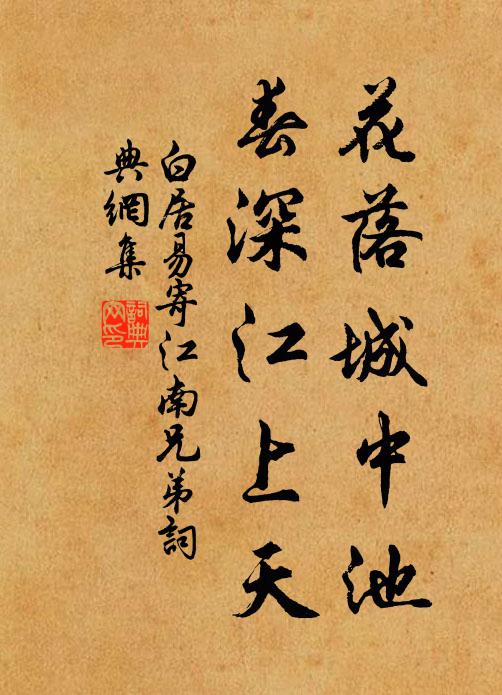 花落城中池
春深江上天
白居易寄江南兄弟詞
典網集
詞典
網印